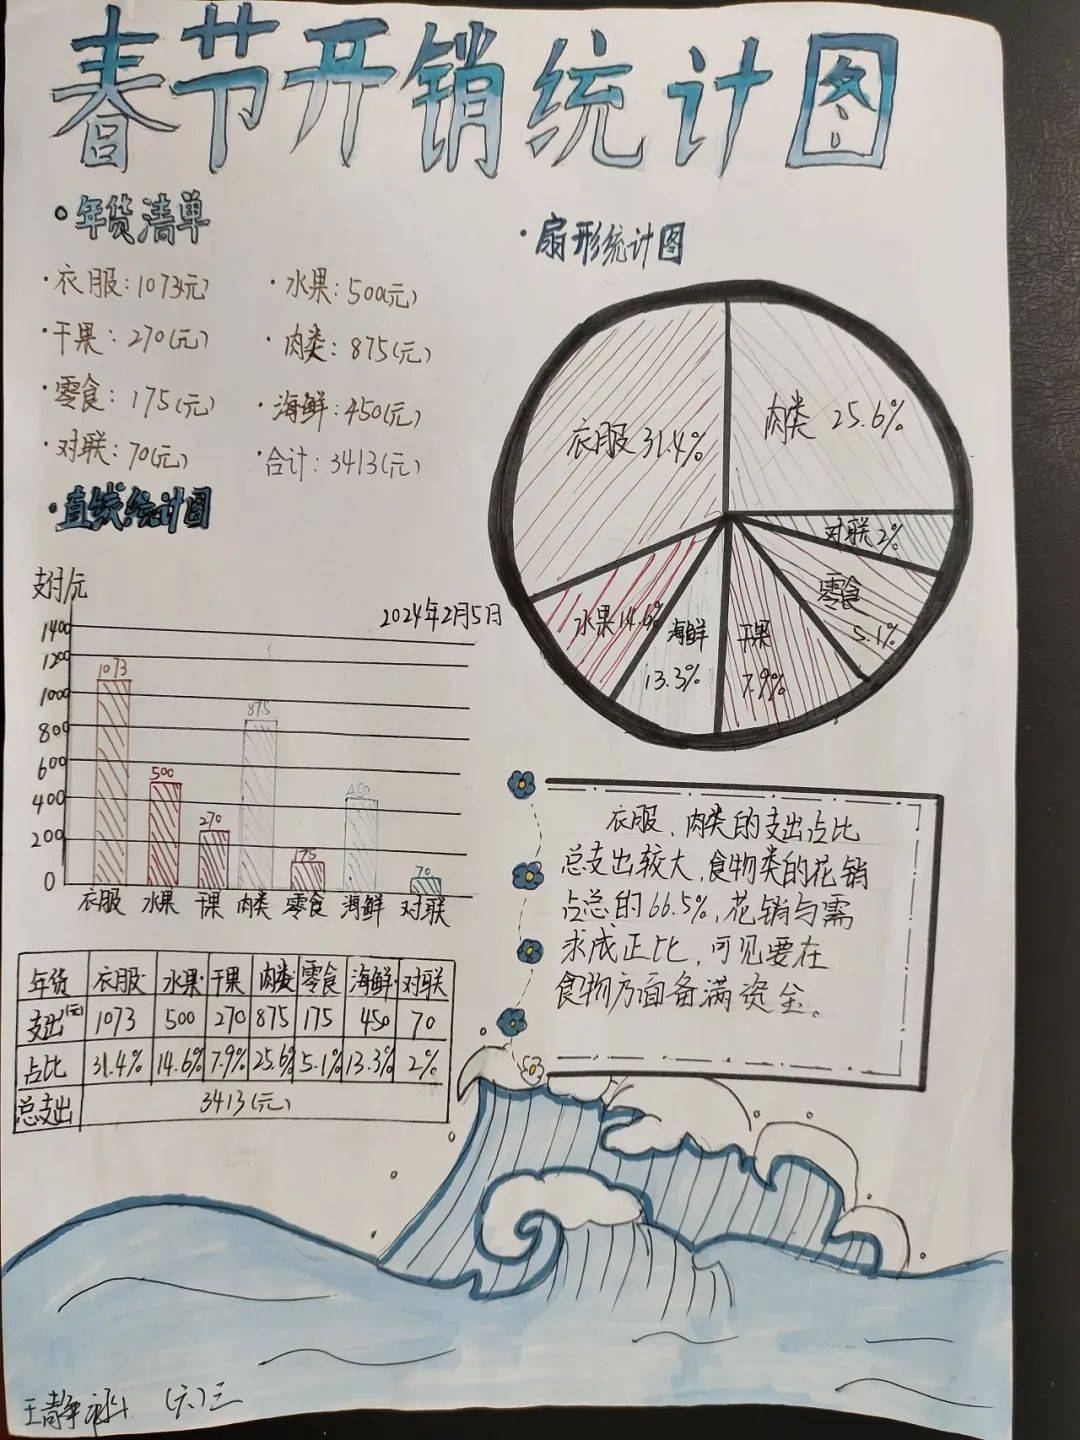 春节开销统计图
·年货清单
·衣服:1073(元)
·水果:500(元)
·干果:270(元)
·肉类:875(元)
·零食:175(元)
·海鲜:450(元)
·对联:70(元)
·合计:3413(元)
·直线统计图
支付/元
2024年2月5日
1400
1200
1000
800
600
400
200
0
1073
500
270
875
175
450
70
衣服 水果 干果 肉类 零食 海鲜 对联
年货 衣服 水果 干果 肉类 零食 海鲜 对联
支出(元) 1073 500 270 875 175 450 70
占比 31.4% 14.6% 7.9% 25.6% 5.1% 13.3% 2%
总支出 3413(元)
·扇形统计图
衣服31.4%
肉类 25.6%
对联2%
零食
5.1%
干果
7.9%
海鲜
13.3%
水果14.6%
衣服、肉类的支出占比
总支出较大,食物类的花销
占总的66.5%,花销与需
求成正比,可见要在
食物方面备满资金。
王静 (六)三